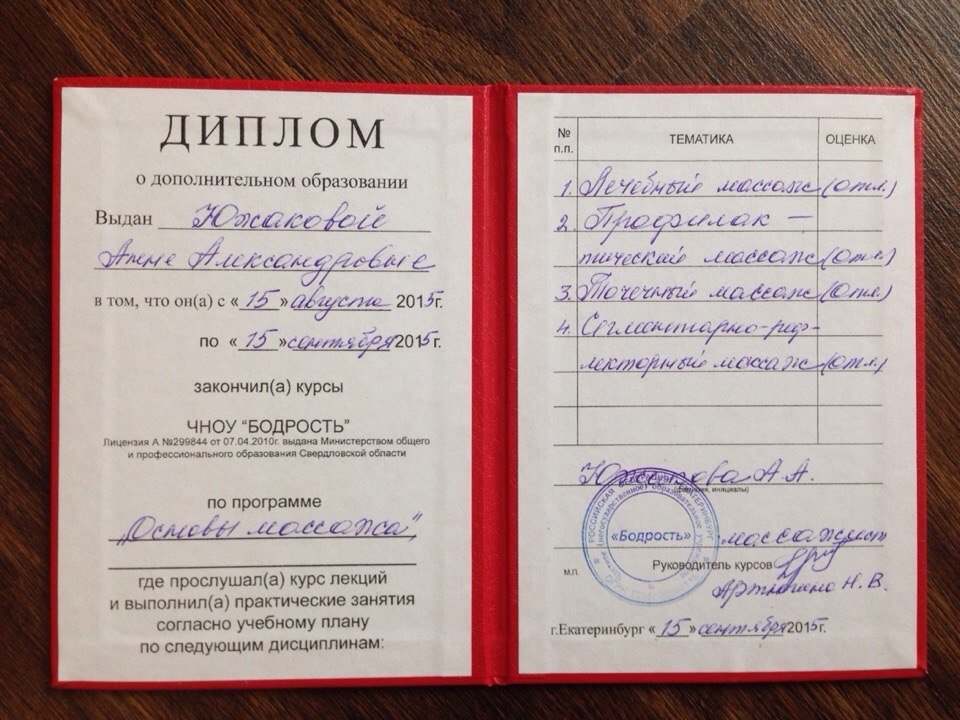 ДИПЛОМ
о дополнительном образовании
Выдан Южаковой
Анне Александровне
в том, что он(а) с «15» августа 2015г.
по «15» сентября 2015г.
закончил(а) курсы
ЧНОУ "БОДРОСТЬ"
Лицензия А №299844 от 07.04.2010г. выдана Министерством общего
и профессионального образования Свердловской области
по программе
„Основы массажа"
где прослушал(а) курс лекций
и выполнил(а) практические занятия
согласно учебному плану
по следующим дисциплинам:
№ п.п. ТЕМАТИКА ОЦЕНКА
1. Лечебный массаж (отл.)
2. Профилак –
тический массаж (отл.)
3. Точечный массаж (отл.)
4. Сегментарно-реф-
лекторный массаж (отл.)
Южакова А.А.
(фамилия, инициалы)
«Бодрость»
массажист
м.п. Руководитель курсов
Н. В.
г.Екатеринбург «15» сентября 2015г.